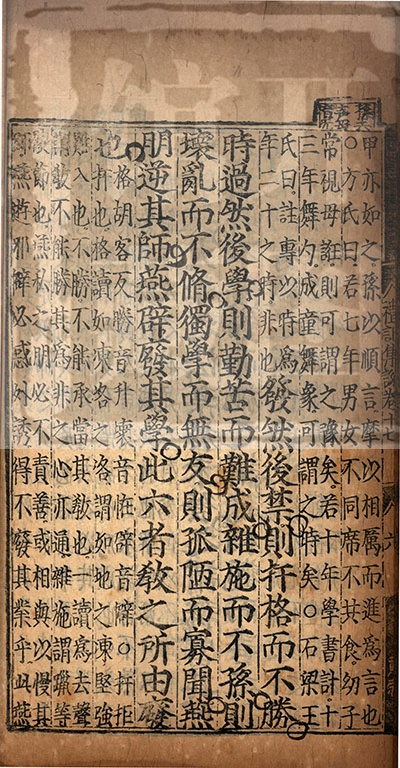 甲亦如之孫以順言摩以相厲而進爲言也
○方氏曰若七年男女不同席不共食幼子
常視毋誑則可謂之豫矣若十年學書計十
三年舞勺成童舞象可謂之時矣○石梁王
氏曰註專以時爲
年二十之時非也
發然後禁則扞格而不勝
時過然後學則勤苦而難成雜施而不孫則
壞亂而不脩獨學而無友則孤陋而寡聞燕
朋逆其師燕辟廢其學此六者教之所由廢
也
格胡客反勝音升壞音怪辟音僻○扞拒
扞也格讀如凍洛之洛謂如地之凍堅強
難入也不勝不能承當其教也一讀爲去聲
謂教不能勝其爲非之心亦通雜施謂躐等
陵節也燕私之朋必不責善或相與以慢其
師燕遊邪僻必惑外誘得不廢其業乎此燕